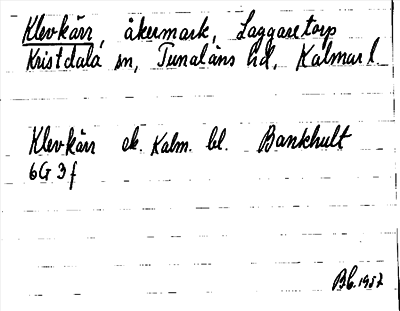 Klevkärr, åkermark, Laggaretorp
Kristdala sn, Tunaläns hd, Kalmar l.
Klevkärr ek. Kalm. bl. Bankhult
6G 3f
1957